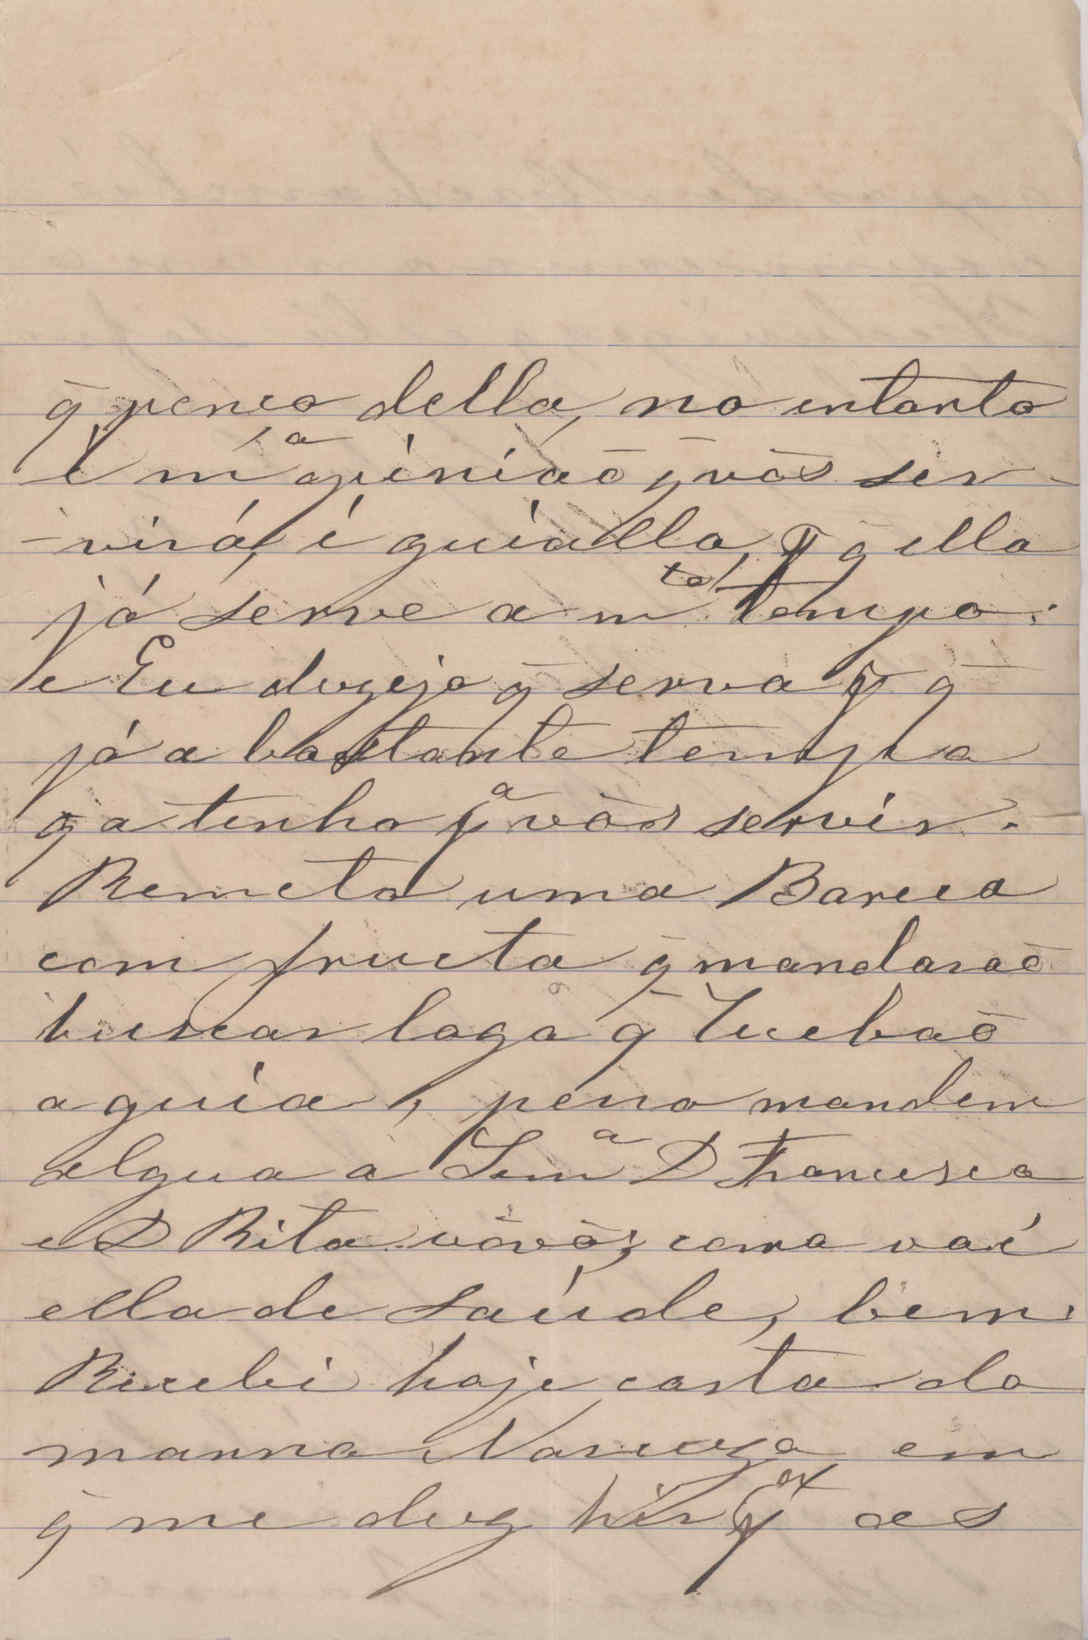 q̃ penço della, no entanto
é m.ª opinião q̃ vós ser-
-virá, é guialla, p q̃ ella
já serve a m.to tempo:
e Eu dezejo q̃ serva p q̃
já a bastante tempo
q̃ a tenho pª vós servir.
Remeto uma Barrica
com fructa q̃ mandarão
buscar logo q̃ recebão
a guia, peço mandem
algua a Snrª D Francisca
e D Rita vóvó; como vai
ella de saúde, bem.
Recebi hoje carta da
manna Narciza em
q̃ me diz hir p as